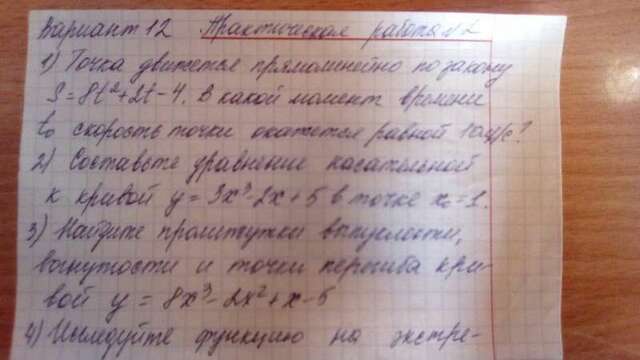 Вариант 12 Практическая работа №2
1) Точка движется прямолинейно по закону
S=8t²+2t-4. В какой момент времени
t₀ скорость точки окажется равной 10м/с?
2) Составьте уравнение касательной
к кривой y=3x³-2x+5 в точке x₀=1.
3) Найдите промежутки выпуклости,
вогнутости и точки перегиба кри-
вой y=8x³-2x²+x-5
4) Исследуйте функцию на экстре-